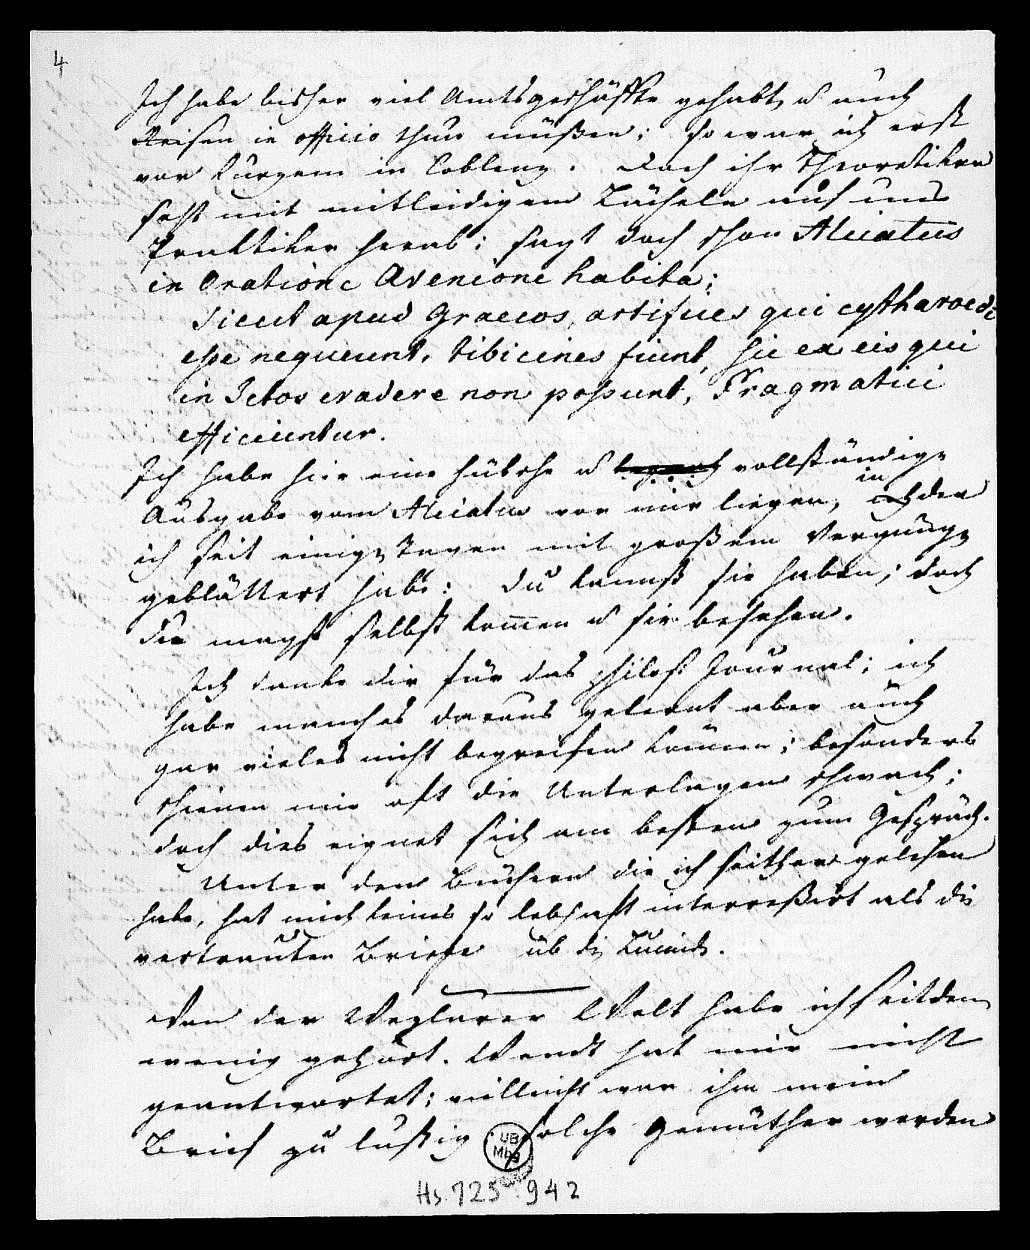 4
Ich habe bisher viel Amtsgeschäfte gehabt, u auch
Reisen in officio thun müßen; so war ich erst
vor kurzem in Coblenz. Doch ihr Theoretiker
seht mit mitleidigem Lächeln auf uns
Praktiker herab; sagt doch schon Alciatus
in Oratione Avenione habita;
Sicut apud Graecos, artifices qui cytharoedi
esse nequeunt, tibicines fiunt, sic ex eis qui
in Ictos evadere non possunt, Pragmatici
efficiuntur.
Ich habe hier eine hübsche u vollständige
Ausgabe vom Alciatus vor mir liegen, in der
ich seit einigen Tagen mit großem Vergnügen
geblättert habe: Du kannst sie haben; doch
Du magst selbst kommen u sie besehen.
Ich danke dir für das philos. Journal; ich
habe manches daraus gelernt aber auch
gar vieles nicht begreifen können; besonders
schienen mir oft die Unterlagen schwach;
doch dies eignet sich am besten zum Gespräch.
Unter den Büchern die ich seither gelesen
habe, hat mich keines so lebhaft interreßirt als die
vertrauten Briefe üb die Lucinde.
Von der Wezlarer Welt habe ich seitdem
wenig gehört. Wendt hat mir nicht
geantwortet; vielleicht war ihm mein
Brief zu lustig solche Gemüther werden
UB
Mbg
Hs. 725:942